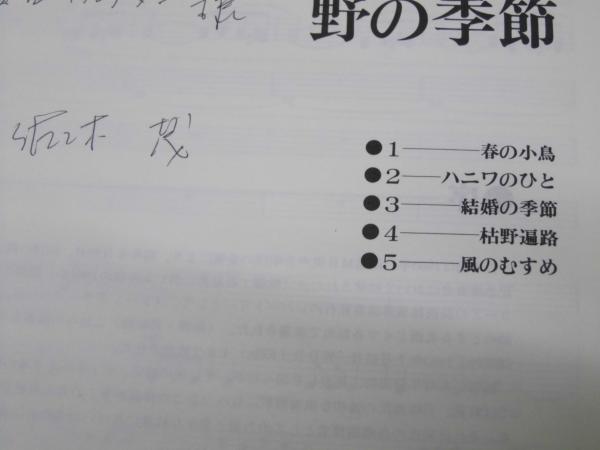 様
野の季節
佐々木 茂
●1――春の小鳥
●2――ハニワのひと
●3――結婚の季節
●4――枯野遍路
●5――風のむすめ